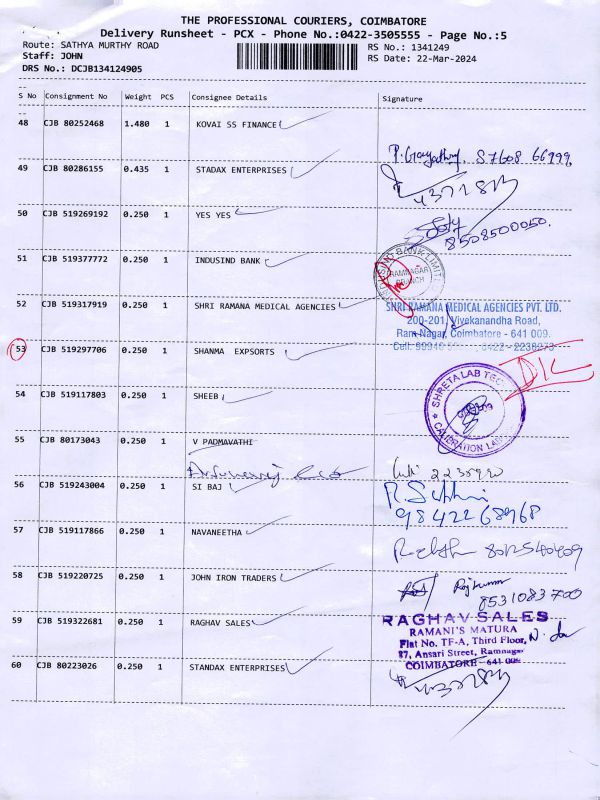 THE PROFESSIONAL COURIERS, COIMBATORE
Delivery Runsheet - PCX - Phone No.:0422-3505555 - Page No.:5
Route: SATHYA MURTHY ROAD RS No.: 1341249
Staff: JOHN RS Date: 22-Mar-2024
DRS No.: DCJB134124905
S No Consignment No Weight PCS Consignee Details Signature
48 CJB 80252468 1.480 1 KOVAI SS FINANCE
P. Gayathri, 57608 66999
49 CJB 80286155 0.435 1 STADAX ENTERPRISES
50 CJB 519269192 0.250 1 YES YES
8508500050.
51 CJB 519377772 0.250 1 INDUSIND BANK
RAMNAGAR
BRANCH
52 CJB 519317919 0.250 1 SHRI RAMANA MEDICAL AGENCIES
SHRI RAMANA MEDICAL AGENCIES PVT. LTD.
200-201, Vivekanandha Road,
Ram Nagar, Coimbatore - 641 009.
53 CJB 519297706 0.250 1 SHANMA EXPSORTS
54 CJB 519117803 0.250 1 SHEEB
SHRETA LAB TEC
CALIBRATION LAB
55 CJB 80173043 0.250 1 V PADMAVATHI
56 CJB 519243004 0.250 1 SI BAJ
9842268968
57 CJB 519117866 0.250 1 NAVANEETHA
8012540409
58 CJB 519220725 0.250 1 JOHN IRON TRADERS
Rajkumar
8531083700
59 CJB 519322681 0.250 1 RAGHAV SALES
RAGHAV SALES
RAMANI'S MATURA
Flat No. TF-A, Third Floor,
87, Ansari Street, Ramnagar
COIMBATORE - 641 009
60 CJB 80223026 0.250 1 STANDAX ENTERPRISES